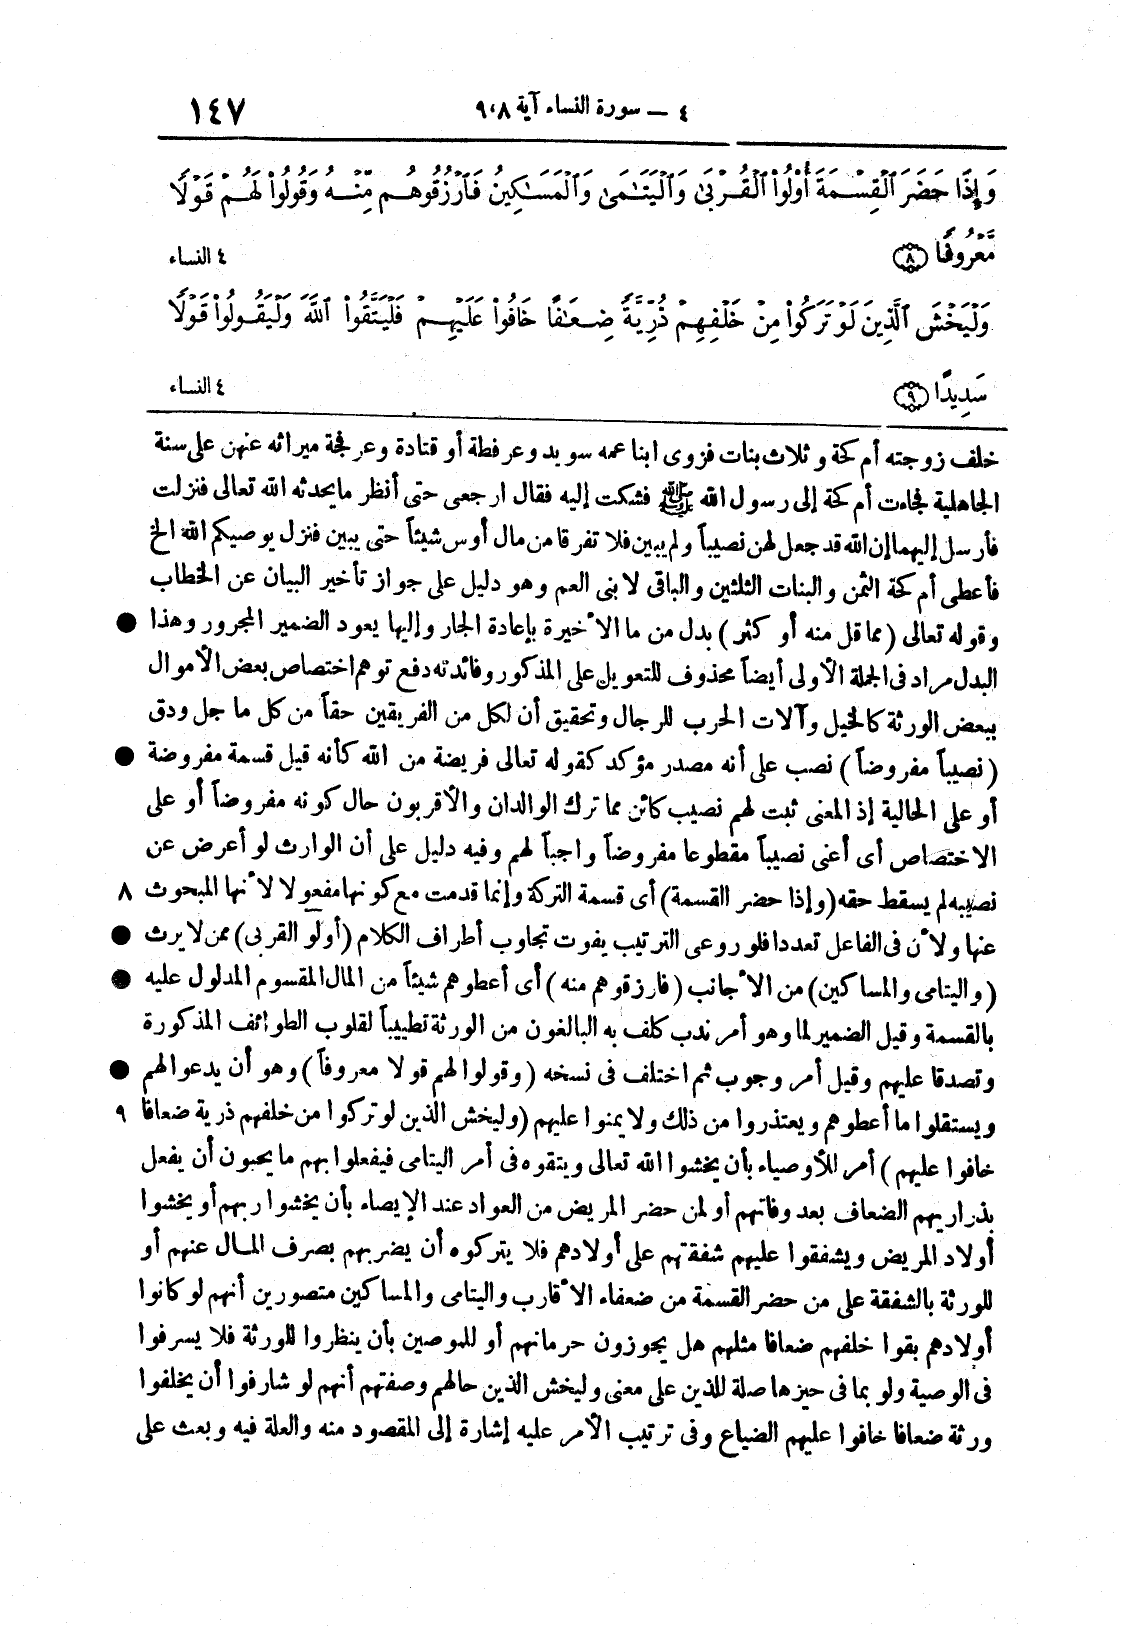 ٤ — سورة النساء آية ٨،٩
١٤٧
وَإِذَا حَضَرَ ٱلْقِسْمَةَ أُوْلُواْ ٱلْقُرْبَىٰ وَٱلْيَتَـٰمَىٰ وَٱلْمَسَـٰكِينُ فَٱرْزُقُوهُم مِّنْهُ وَقُولُواْ لَهُمْ قَوْلًا
مَّعْرُوفًا ﴿٨﴾
٤ النساء
وَلْيَخْشَ ٱلَّذِينَ لَوْ تَرَكُواْ مِنْ خَلْفِهِمْ ذُرِّيَّةً ضِعَـٰفًا خَافُواْ عَلَيْهِمْ فَلْيَتَّقُواْ ٱللَّهَ وَلْيَقُولُواْ قَوْلًا
سَدِيدًا ﴿٩﴾
٤ النساء
خلف زوجته أم كحة وثلاث بنات فزوى ابنا عمه سويد وعرفطة أو قتادة وعرفجة ميراثه عنهن على سنة
الجاهلية فجاءت أم كحة إلى رسول الله ﷺ فشكت إليه فقال ارجعى حتى أنظر ما يحدثه الله تعالى فنزلت
فأرسل إليهما إن الله قد جعل لهن نصيباً ولم يبين فلا تفرقا من مال أوس شيئاً حتى يبين فنزل يوصيكم الله الخ
فأعطى أم كحة الثمن والبنات الثلثين والباقى لابنى العم وهو دليل على جواز تأخير البيان عن الخطاب
وقوله تعالى (مما قل منه أو كثر) بدل من ما الأخيرة بإعادة الجار وإليها يعود الضمير المجرور وهذا ●
البدل مراد فى الجملة الأولى أيضاً محذوف للتعويل على المذكور وفائدته دفع توهم اختصاص بعض الأموال
ببعض الورثة كالخيل وآلات الحرب للرجال وتحقيق أن لكل من الفريقين حقاً من كل ما جل ودق
(نصيباً مفروضاً) نصب على أنه مصدر مؤكد كقوله تعالى فريضة من الله كأنه قيل قسمة مفروضة ●
أو على الحالية إذ المعنى ثبت لهم نصيب كائن مما ترك الوالدان والأقربون حال كونه مفروضاً أو على
الاختصاص أى أعنى نصيباً مقطوعا مفروضاً واجباً لهم وفيه دليل على أن الوارث لو أعرض عن
نصيبه لم يسقط حقه (وإذا حضر القسمة) أى قسمة التركة وإنما قدمت مع كونها مفعولا لأنها المبحوث ٨
عنها ولأن فى الفاعل تعددا فلو روعى الترتيب يفوت تجاوب أطراف الكلام (أولو القربى) ممن لا يرث ●
(واليتامى والمساكين) من الأجانب (فارزقوهم منه) أى أعطوهم شيئاً من المال المقسوم المدلول عليه ●
بالقسمة وقيل الضمير لما وهو أمر ندب كلف به البالغون من الورثة تطييباً لقلوب الطوائف المذكورة
وتصدقا عليهم وقيل أمر وجوب ثم اختلف فى نسخه (وقولوا لهم قولا معروفاً) وهو أن يدعوا لهم ●
ويستقلوا ما أعطوهم ويعتذروا من ذلك ولا يمنوا عليهم (وليخش الذين لو تركوا من خلفهم ذرية ضعافا ٩
خافوا عليهم) أمر للأوصياء بأن يخشوا الله تعالى ويتقوه فى أمر اليتامى فيفعلوا بهم ما يحبون أن يفعل
بذراريهم الضعاف بعد وفاتهم أو لمن حضر المريض من العواد عند الإيصاء بأن يخشوا ربهم أو يخشوا
أولاد المريض ويشفقوا عليهم شفقتهم على أولادهم فلا يتركوه أن يضربهم بصرف المال عنهم أو
للورثة بالشفقة على من حضر القسمة من ضعفاء الأقارب واليتامى والمساكين متصورين أنهم لو كانوا
أولادهم بقوا خلفهم ضعافا مثلهم هل يجوزون حرمانهم أو للموصين بأن ينظروا للورثة فلا يسرفوا
فى الوصية ولو بما فى حيزها صلة للذين على معنى وليخش الذين حالهم وصفتهم أنهم لو شارفوا أن يخلفوا
ورثة ضعافا خافوا عليهم الضياع وفى ترتيب الأمر عليه إشارة إلى المقصود منه والعلة فيه وبعث على